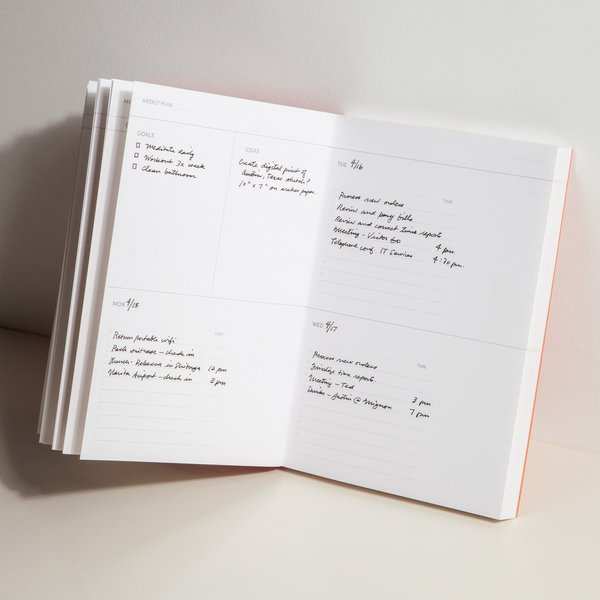 WEEKLY PLAN
GOALS
Meditate daily
Workout 3x week
Clean bathroom
IDEAS
Create digital print of
Austin, Texas sketch?
10" x 7" on arches paper.
MON 4/15
TIME
Return portable wifi
Pack suitcase - check in
Lunch - Rebecca in Shibuya 12 pm
Narita Airport - check in 3 pm
TUE 4/16
TIME
Process new orders
Review and pay bills
Review and correct time reports
Meeting - Visitor Co 4 pm.
Telephone conf. IT Services 4:30 pm.
WED 4/17
TIME
Process new orders
Finalize time reports
Meeting - Ted 3 pm
Dinner - Austin @ Mignon 7 pm